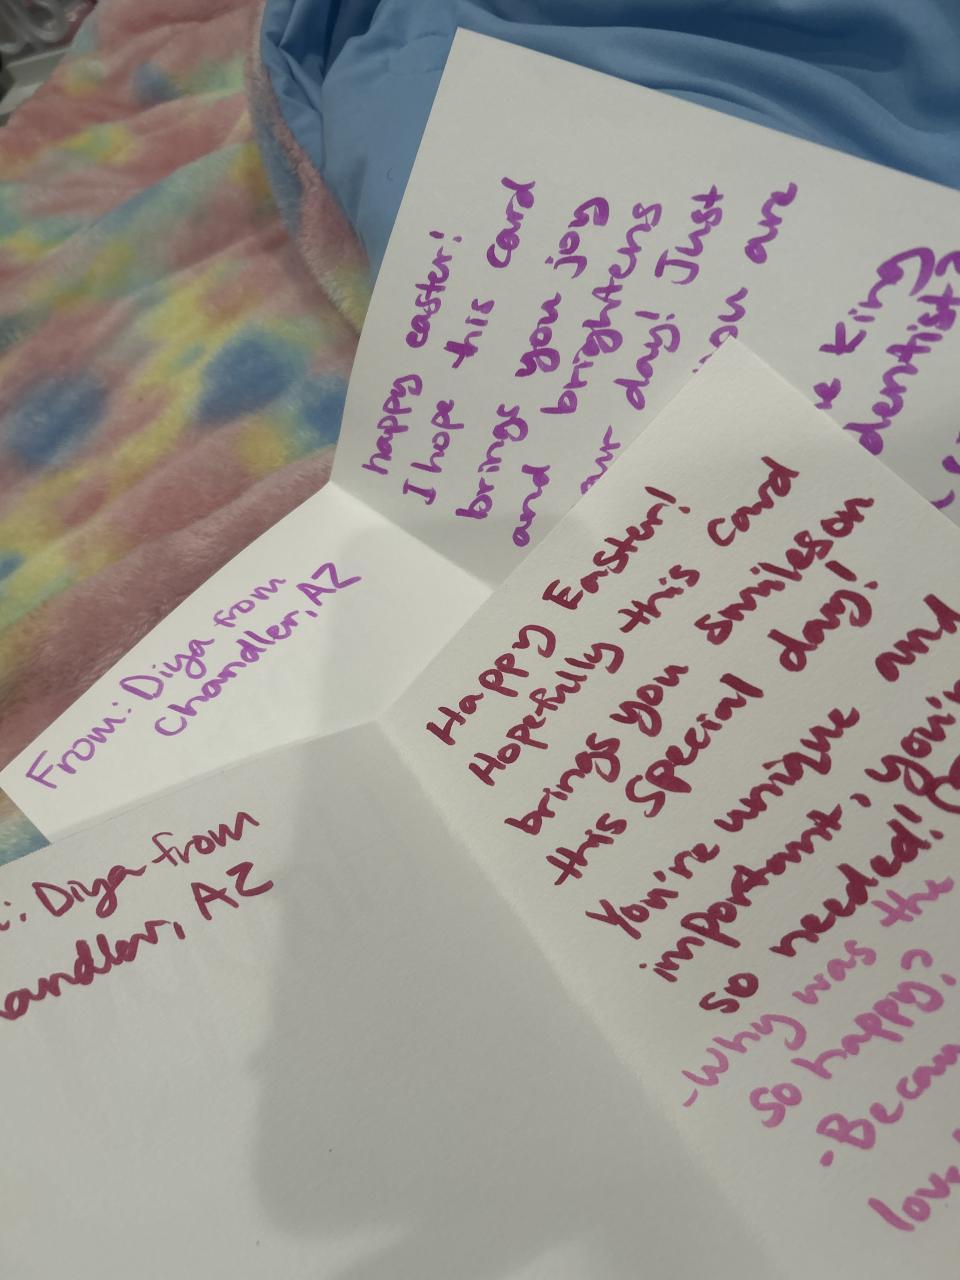 happy easter!
I hope this card
brings you joy
and brightens
day! Just
you are
king
dentist?
From: Diya from
Chandler, AZ
Happy Easter!
Hopefully this card
brings you smiles on
this special day!
You're unique and
important, you're
so needed!
-Why was the
so happy?
-Becau
Diya from
andler, AZ